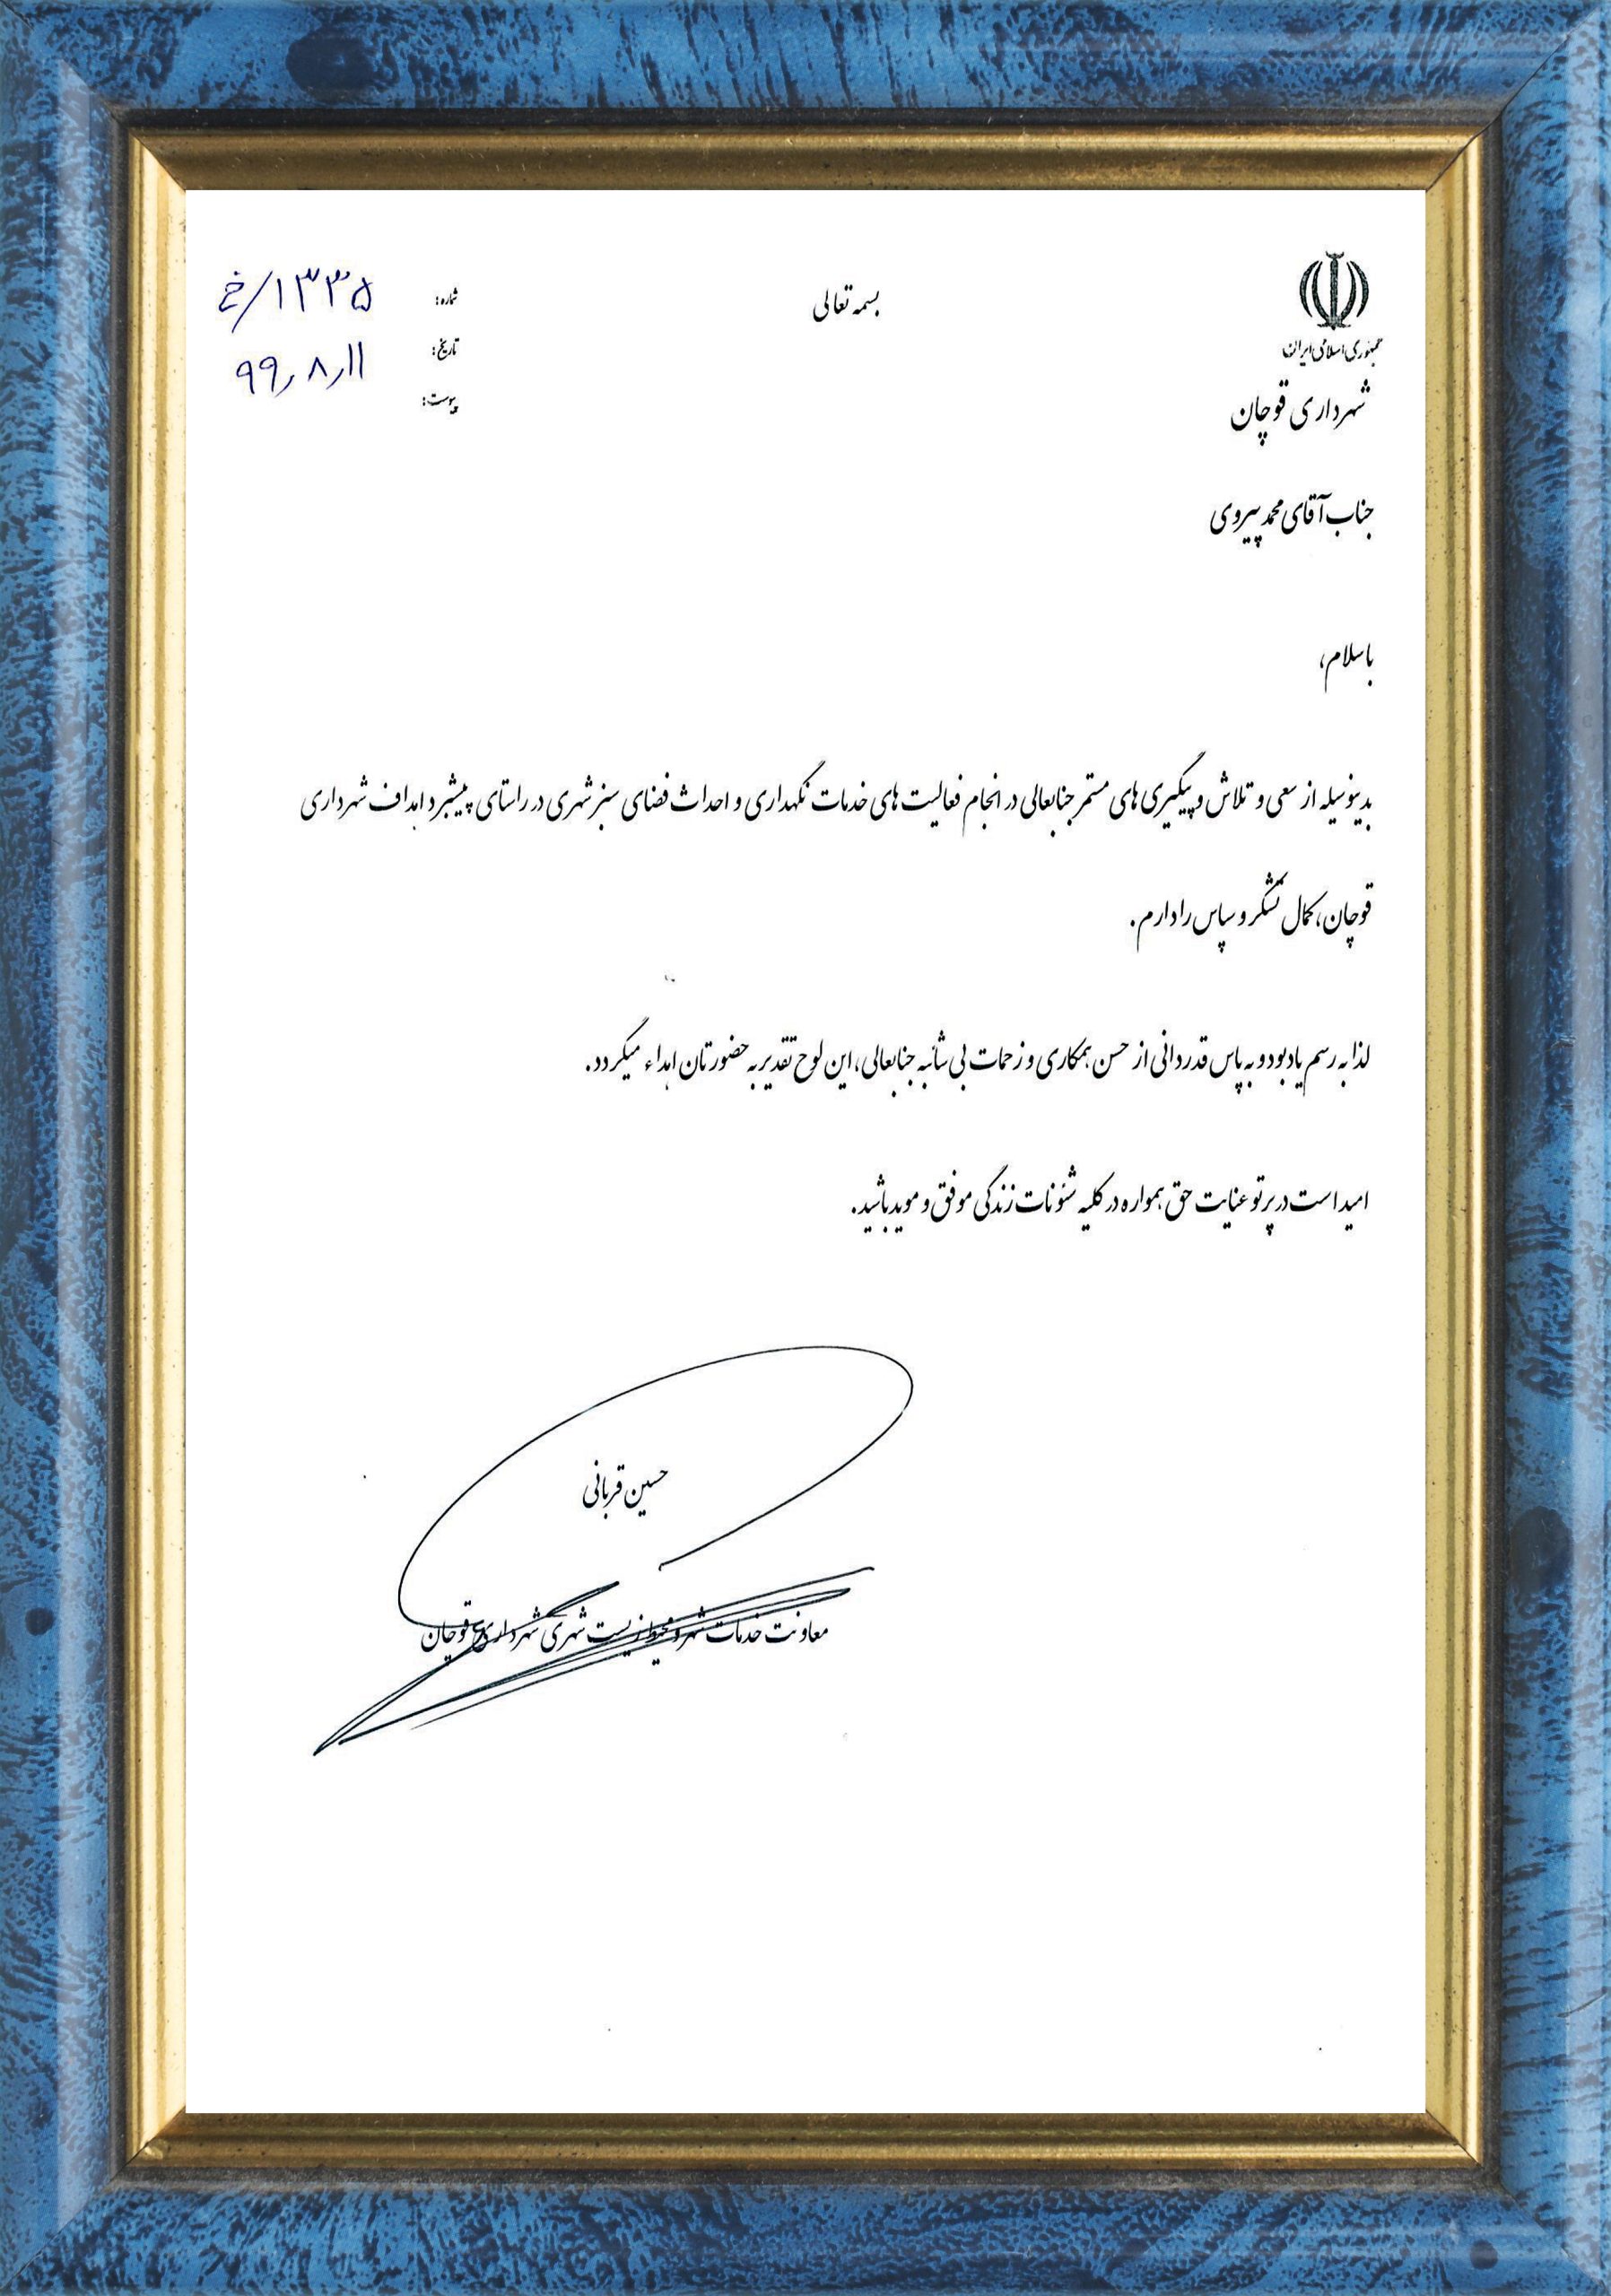 بسمه تعالی
جمهوری اسلامی ایران
شهرداری قوچان
شماره: ۱۳۳۵/خ
تاریخ: ۹۹٫۸٫۱۱
پیوست:
جناب آقای محمد پیروی
باسلام،
بدینوسیله از سعی و تلاش و پیگیری های مستمر جنابعالی در انجام فعالیت های خدمات نگهداری و احداث فضای سبز شهری در راستای پیشبرد اهداف شهرداری
قوچان، کمال تشکر و سپاس را دارم.
لذا به رسم یادبود و به پاس قدردانی از حسن همکاری و زحمات بی شائبه جنابعالی، این لوح تقدیر به حضورتان اهداء میگردد.
امید است در پرتو عنایت حق همواره در کلیه شئونات زندگی موفق و موید باشید.
حسین قربانی
معاونت خدمات شهر و محیط زیست شهری شهرداری قوچان